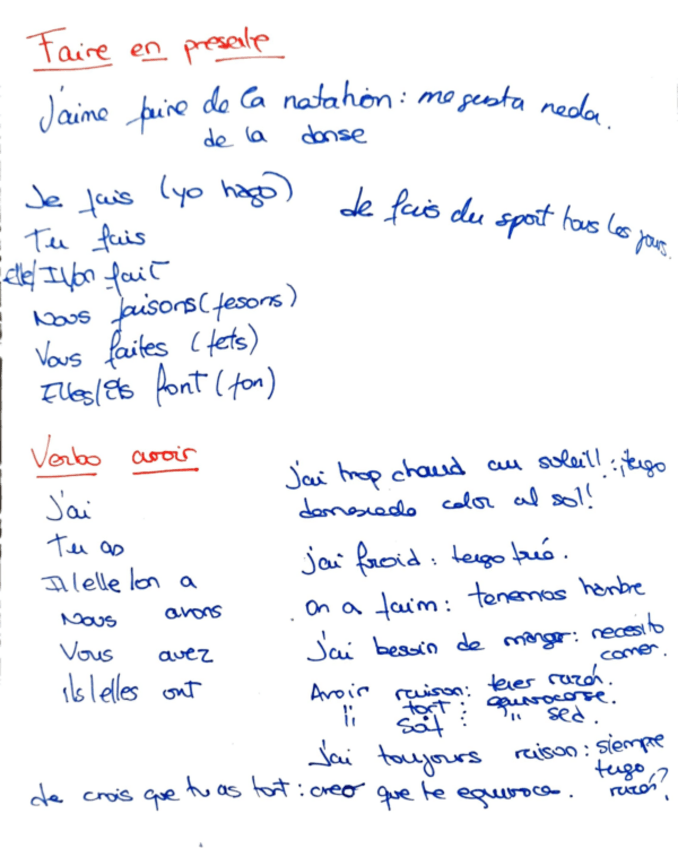 Faire en presente
J'aime faire de la natahion: me gusta nedar.
de la danse
Je fais (yo hago)
Je fais du sport tous les jours.
Tu fais
elle/Il/on fait
Nous faisons (fesons)
Vous faites (fets)
Elles/ils font (fon)
Verbo avoir
J'ai
Tu as
Il/elle/on a
Nous avons
Vous avez
ils/elles ont
J'ai trop chaud au soleil! : ¡tengo
demasiado calor al sol!
j'ai froid : tengo frío.
On a faim : tenemos hambre
J'ai besoin de manger: necesito
comer.
Avoir raison: tener razón.
" tort : equivocarse.
soif : " sed.
J'ai toujours raison: siempre
tengo
razón?
Je crois que tu as tort : creo que te equivoca.